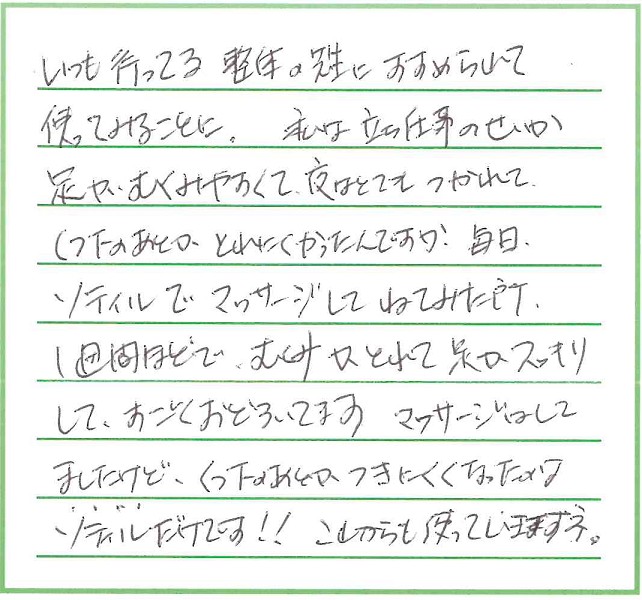 いつも行ってる整体の先生にすすめられて
使ってみることに。 私は立ち仕事のせいか
足が、むくみやすくて、夜はとても つかれて、
くつ下のあとが とれにくかったんですが、毎日、
ソティルでマッサージして ねてみた所、
1週間ほどで、むくみがとれて 足がスッキリ
して、すごくおどろいてます マッサージはして
ましたけど、くつ下のあとが つきにくくなったのは
ソティルだけです!! これからも使っていきますネ。